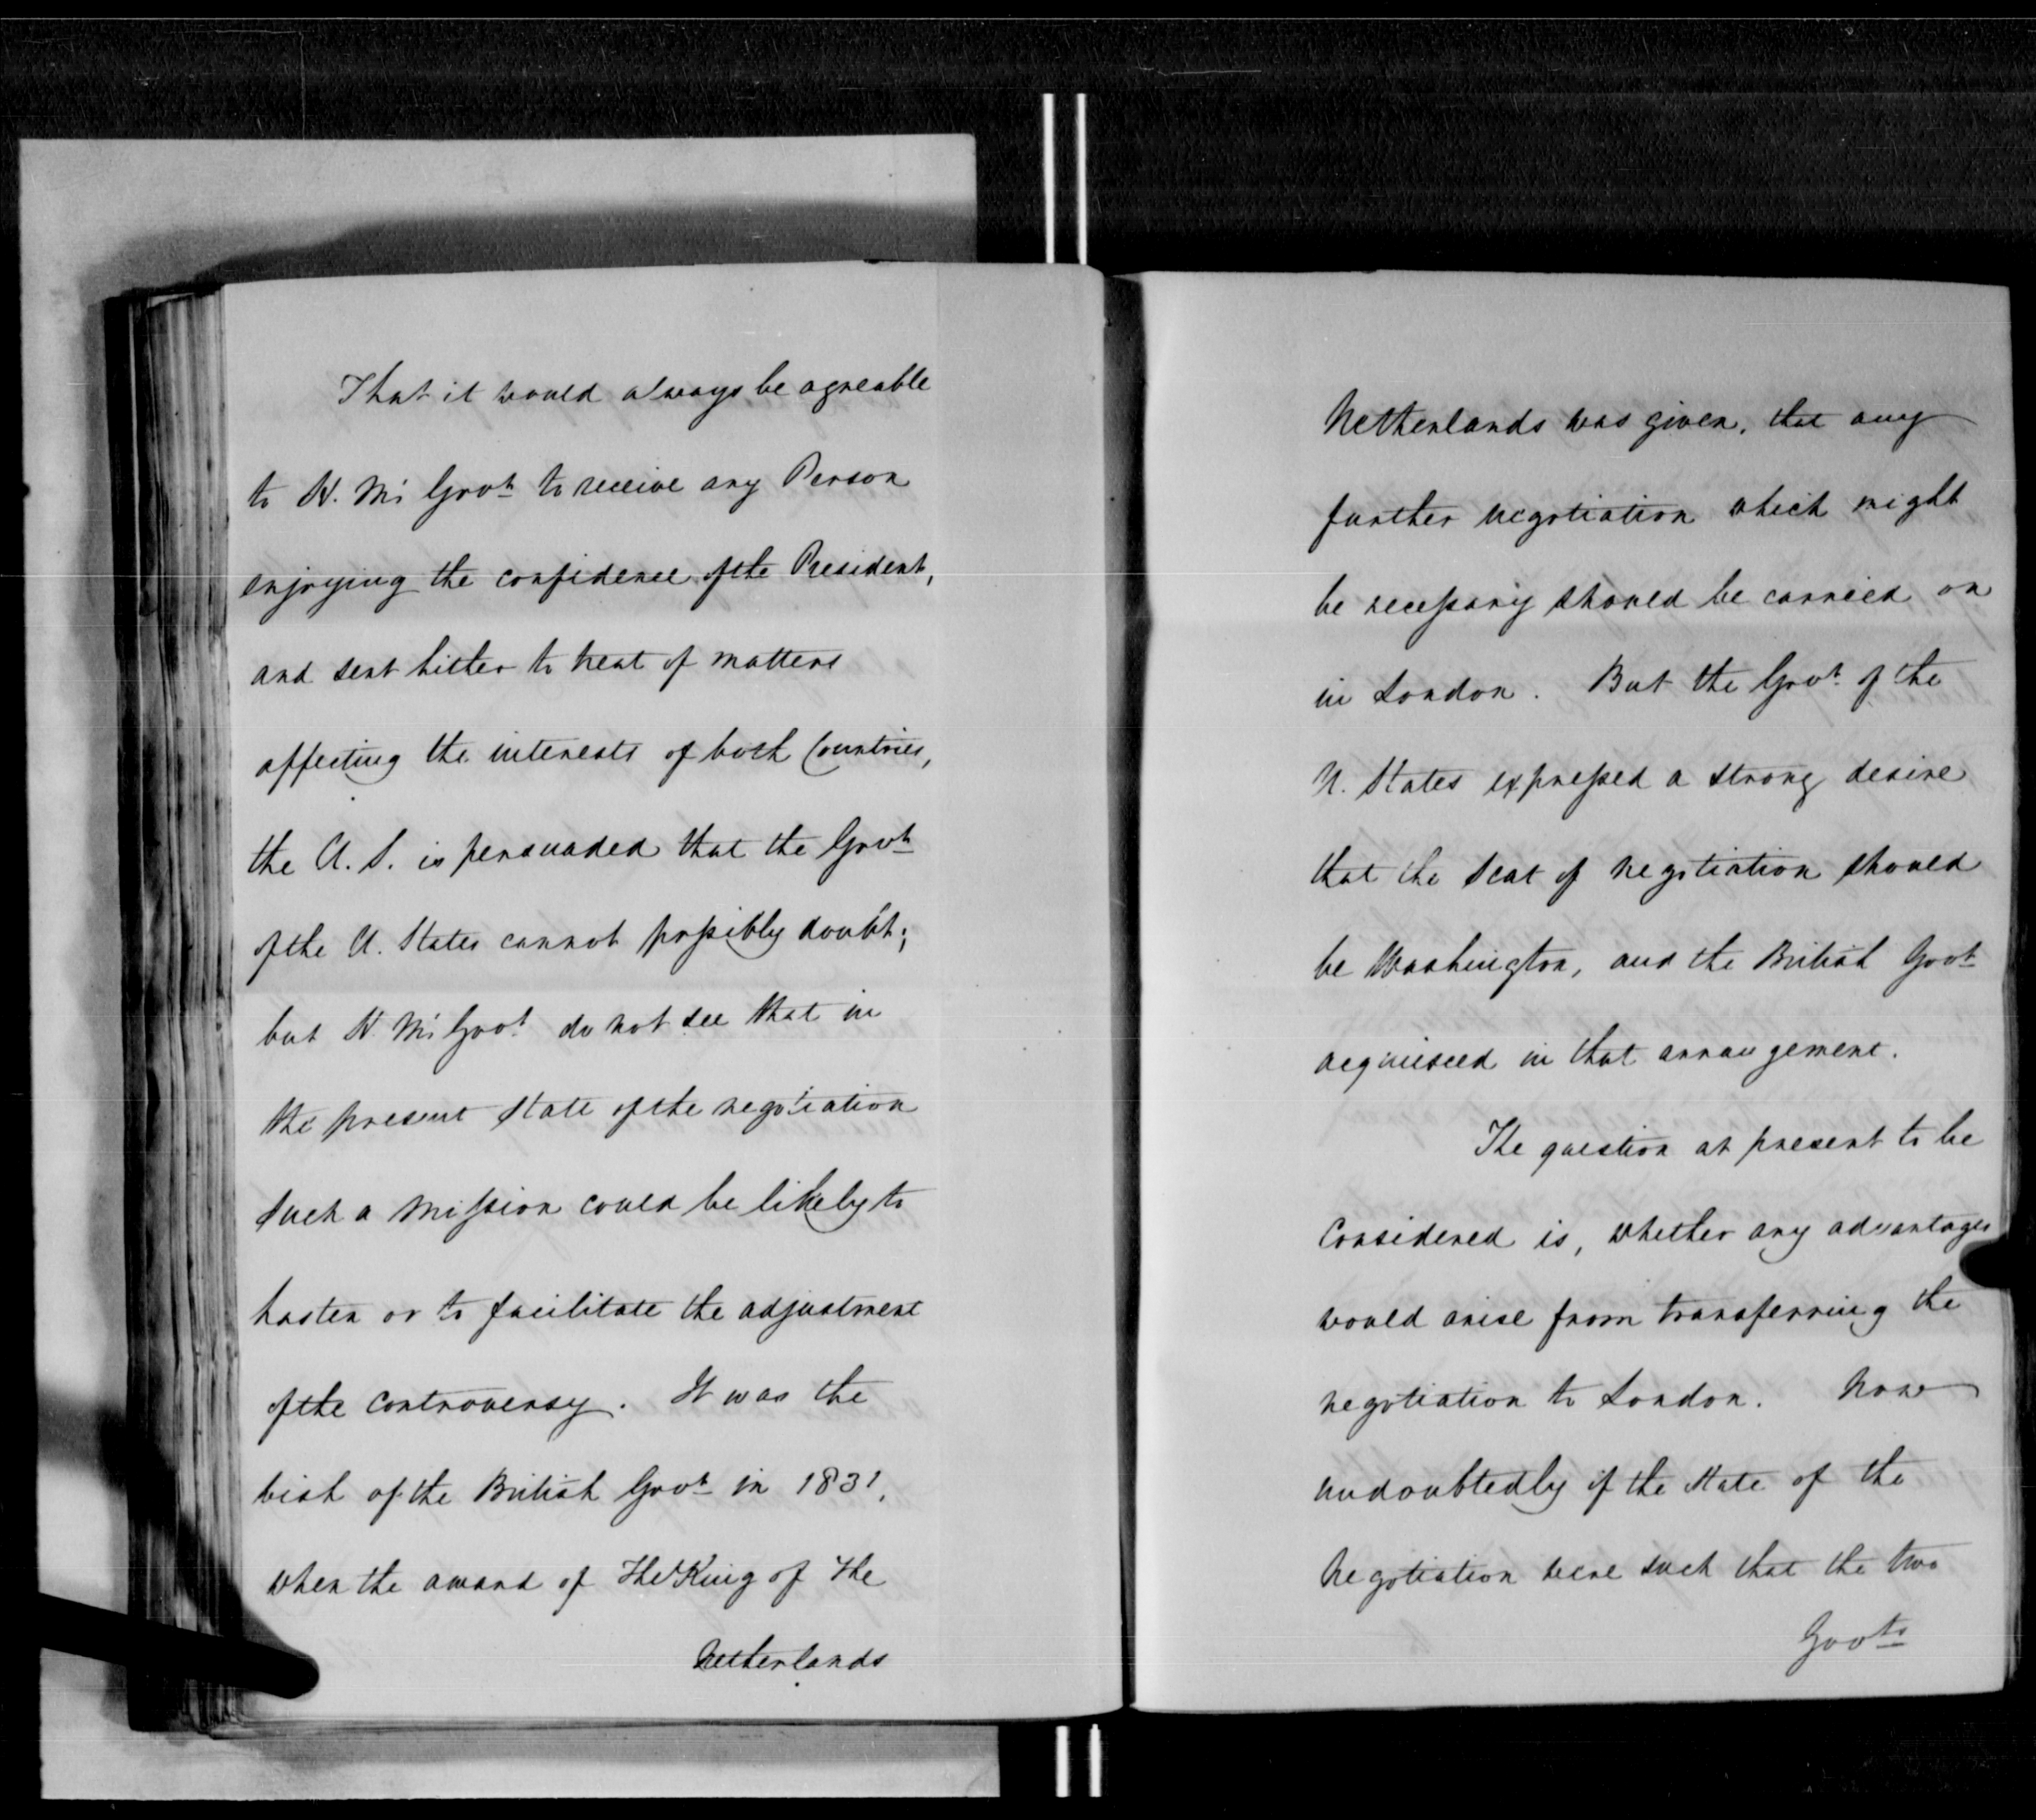 That it would always be agreable
to H. M's Govt to receive any Person
enjoying the confidence of the President,
and sent hither to treat of matters
affecting the interests of both Countries,
the U. S. is persuaded that the Govt
of the U. States cannot possibly doubt;
but H. M's Govt do not see that in
the present state of the negotiation
such a Mission could be likely to
hasten or to facilitate the adjustment
of the controversy. It was the
wish of the British Govt in 1831,
when the award of The King of the
Netherlands
Netherlands was given, that any
further negotiation which might
be necessary should be carried on
in London. But the Govt of the
U. States expressed a strong desire
that the Seat of negotiation should
be Washington, and the British Govt
acquiesced in that arrangement.
The question at present to be
considered is, whether any advantages
would arise from transferring the
negotiation to London. Now
undoubtedly if the state of the
Negotiation were such that the two
Govts